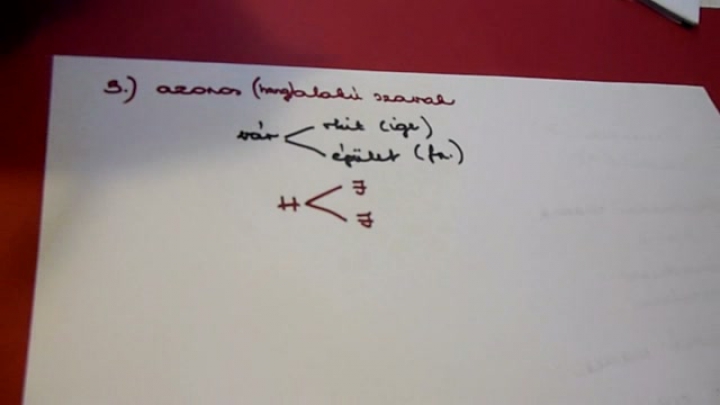 3.) azonos (hang)alakú szavak
vár
vkit (ige)
épület (fn.)
H
J
J